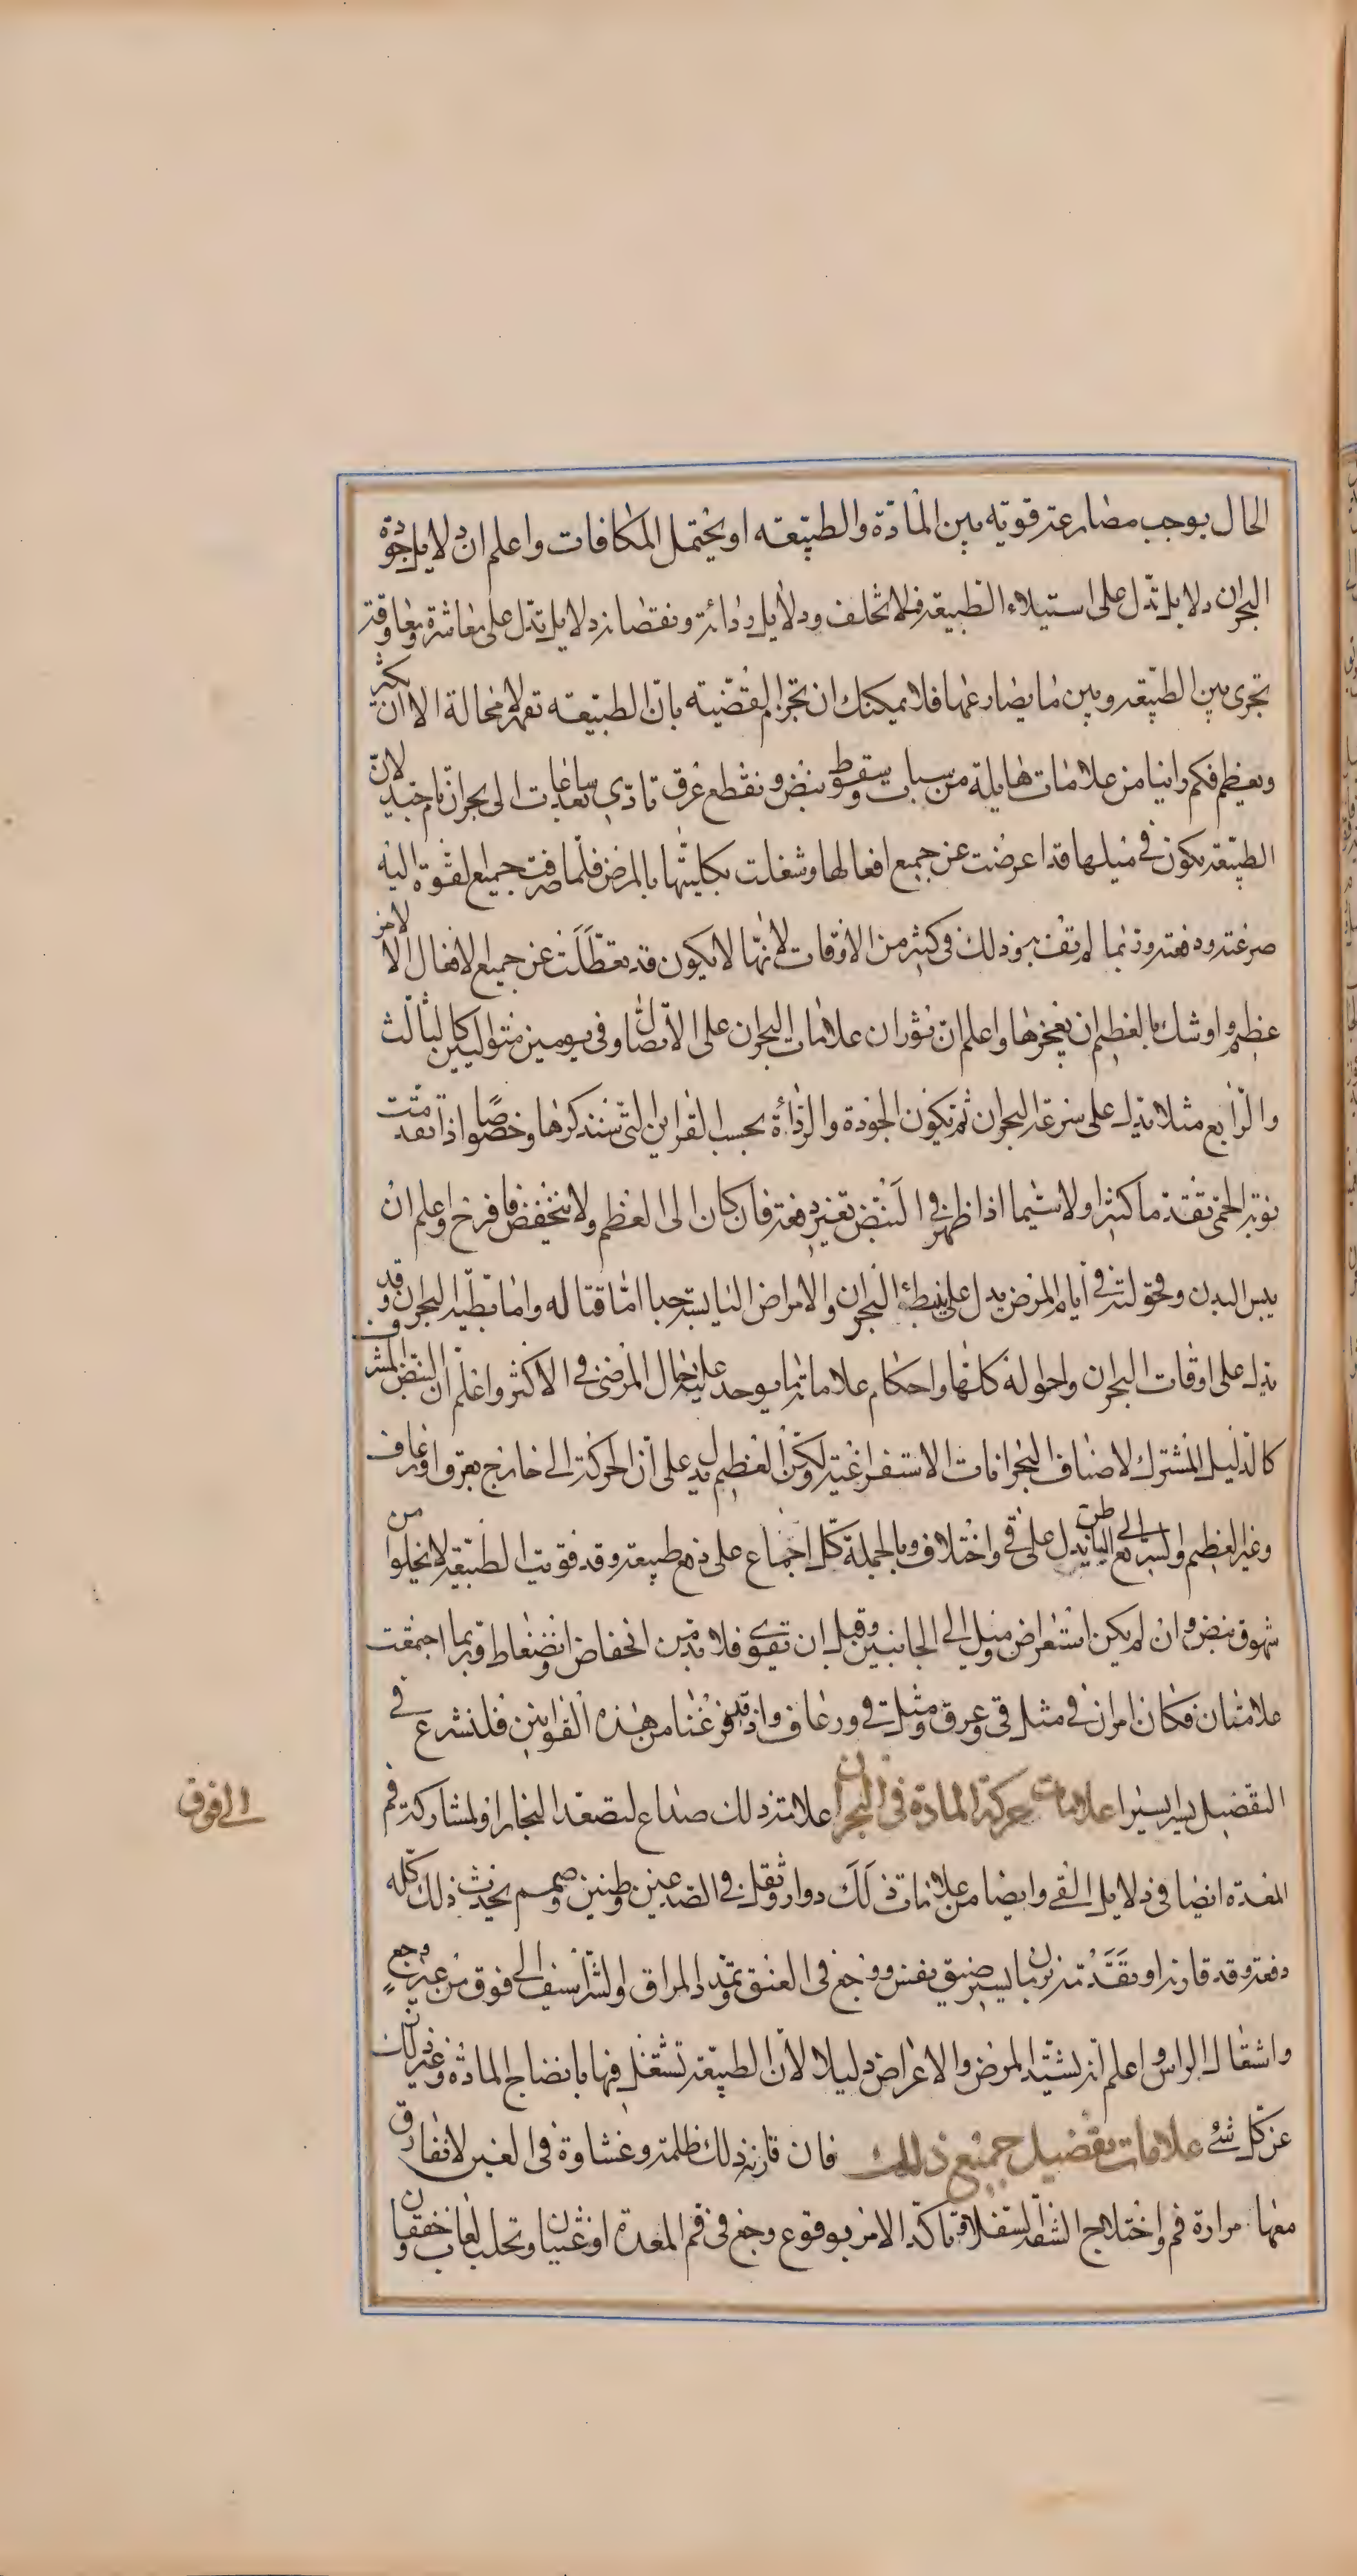 الحال يوجب مصارعة قوية بين المادة والطبيعة او يحتمل المكافات واعلم ان دلايل جودة
البحران دلايل تدل على استيلاء الطبيعة فلا تخلف ودلايل ردائة ونقصانه دلايل تدل على معاشرة ومعاوقة
تجرى بين الطبيعة وبين ما يصارعها فلا يمكنك ان تجزم القضية بان الطبيعة تقهر لا محالة الا ان يكثر
ويعظم فكم راينا من علامات هايلة من سبات وسقوط نبض وتقطع عرق تادى بعد ساعات الى بحران تام جيد لان
الطبيعة تكون في مثلها قد اعرضت عن جميع افعالها وشغلت بكليتها بالمرض فلما صرفت جميع القوة اليه
صرعته ودفعته وربما لم تف به وذلك في كثير من الاوقات لانها لا يكون قد تعطلت عن جميع الافعال الا لامر
عظيم واوشك بالعظيم ان يعجزها واعلم ان ثوران علامات البحران على الاتصال او في يومين متواليين كالثالث
والرابع مثلا يدل على سرعة البحران ثم تكون الجودة والردائة بحسب القراين التي سنذكرها وخصوصا اذا تقدمت
نوبة الحمى تقدما كثيرا ولا سيما اذا ظهر في النبض تغير دفعة فان كان الى العظم ولا ينخفض فافرح واعلم ان
يبس البدن وقحولته في ايام المرض يدل على بطئ البحران والامراض اليابسة جدا اما قتاله واما بطية البحران وقد
يدل على اوقات البحران واحواله كلها واحكام علاماته ما يوجد عليه حال المرضى في الاكثر واعلم ان النبض المشرف
كالدليل المشترك لاصناف البحرانات الاستفراغية ولكن العظيم يدل على ان الحركة الى خارج بعرق او رعاف
وغير العظيم والسريع الى الباطن يدل على قي واختلاف وبالجملة كل اجماع على دفع طبيعة وقد قويت الطبيعة لا يخلوا من
شهوق نبض وان لم يكن استعراض وميل الى الجانبين وقبل ان تقوى فلا بد من انخفاض وانضغاط وربما اجتمعت
علامتان فكان امران في مثل قي وعرق ومثل قي ورعاف واذ قد فرغنا من هذه القوانين فلنشرع في
التفصيل يسيرا يسيرا علامات حركة المادة في البحران علامة ذلك صداع لتصعد البخار او لمشاركة فم
الى فوق
المعدة ايضا في دلايل القي وايضا من علامات ذلك دوار وثقل في الصدغين وطنين وصمم يحدث ذلك كله
دفعة وقد قارنه او تقدمه بزمان يسير ضيق نفس ووجع في العنق وتمدد المراق والشراسيف الى فوق من غير وجع
واشتعال الراس واعلم انه يشتد المرض والاعراض ليلا لان الطبيعة تشتغل فيها بانضاج المادة وغير ذلك
عن كل شئ علامات تفصيل جميع ذلك فان قارنه ذلك ظلمة وغشاوة في العين لا تفارق
معها مرارة فم واختلاج الشفة السفلى وتاكد الامر بوقوع وجع في فم المعدة او غثيان وتحلب لعاب وخفقان و